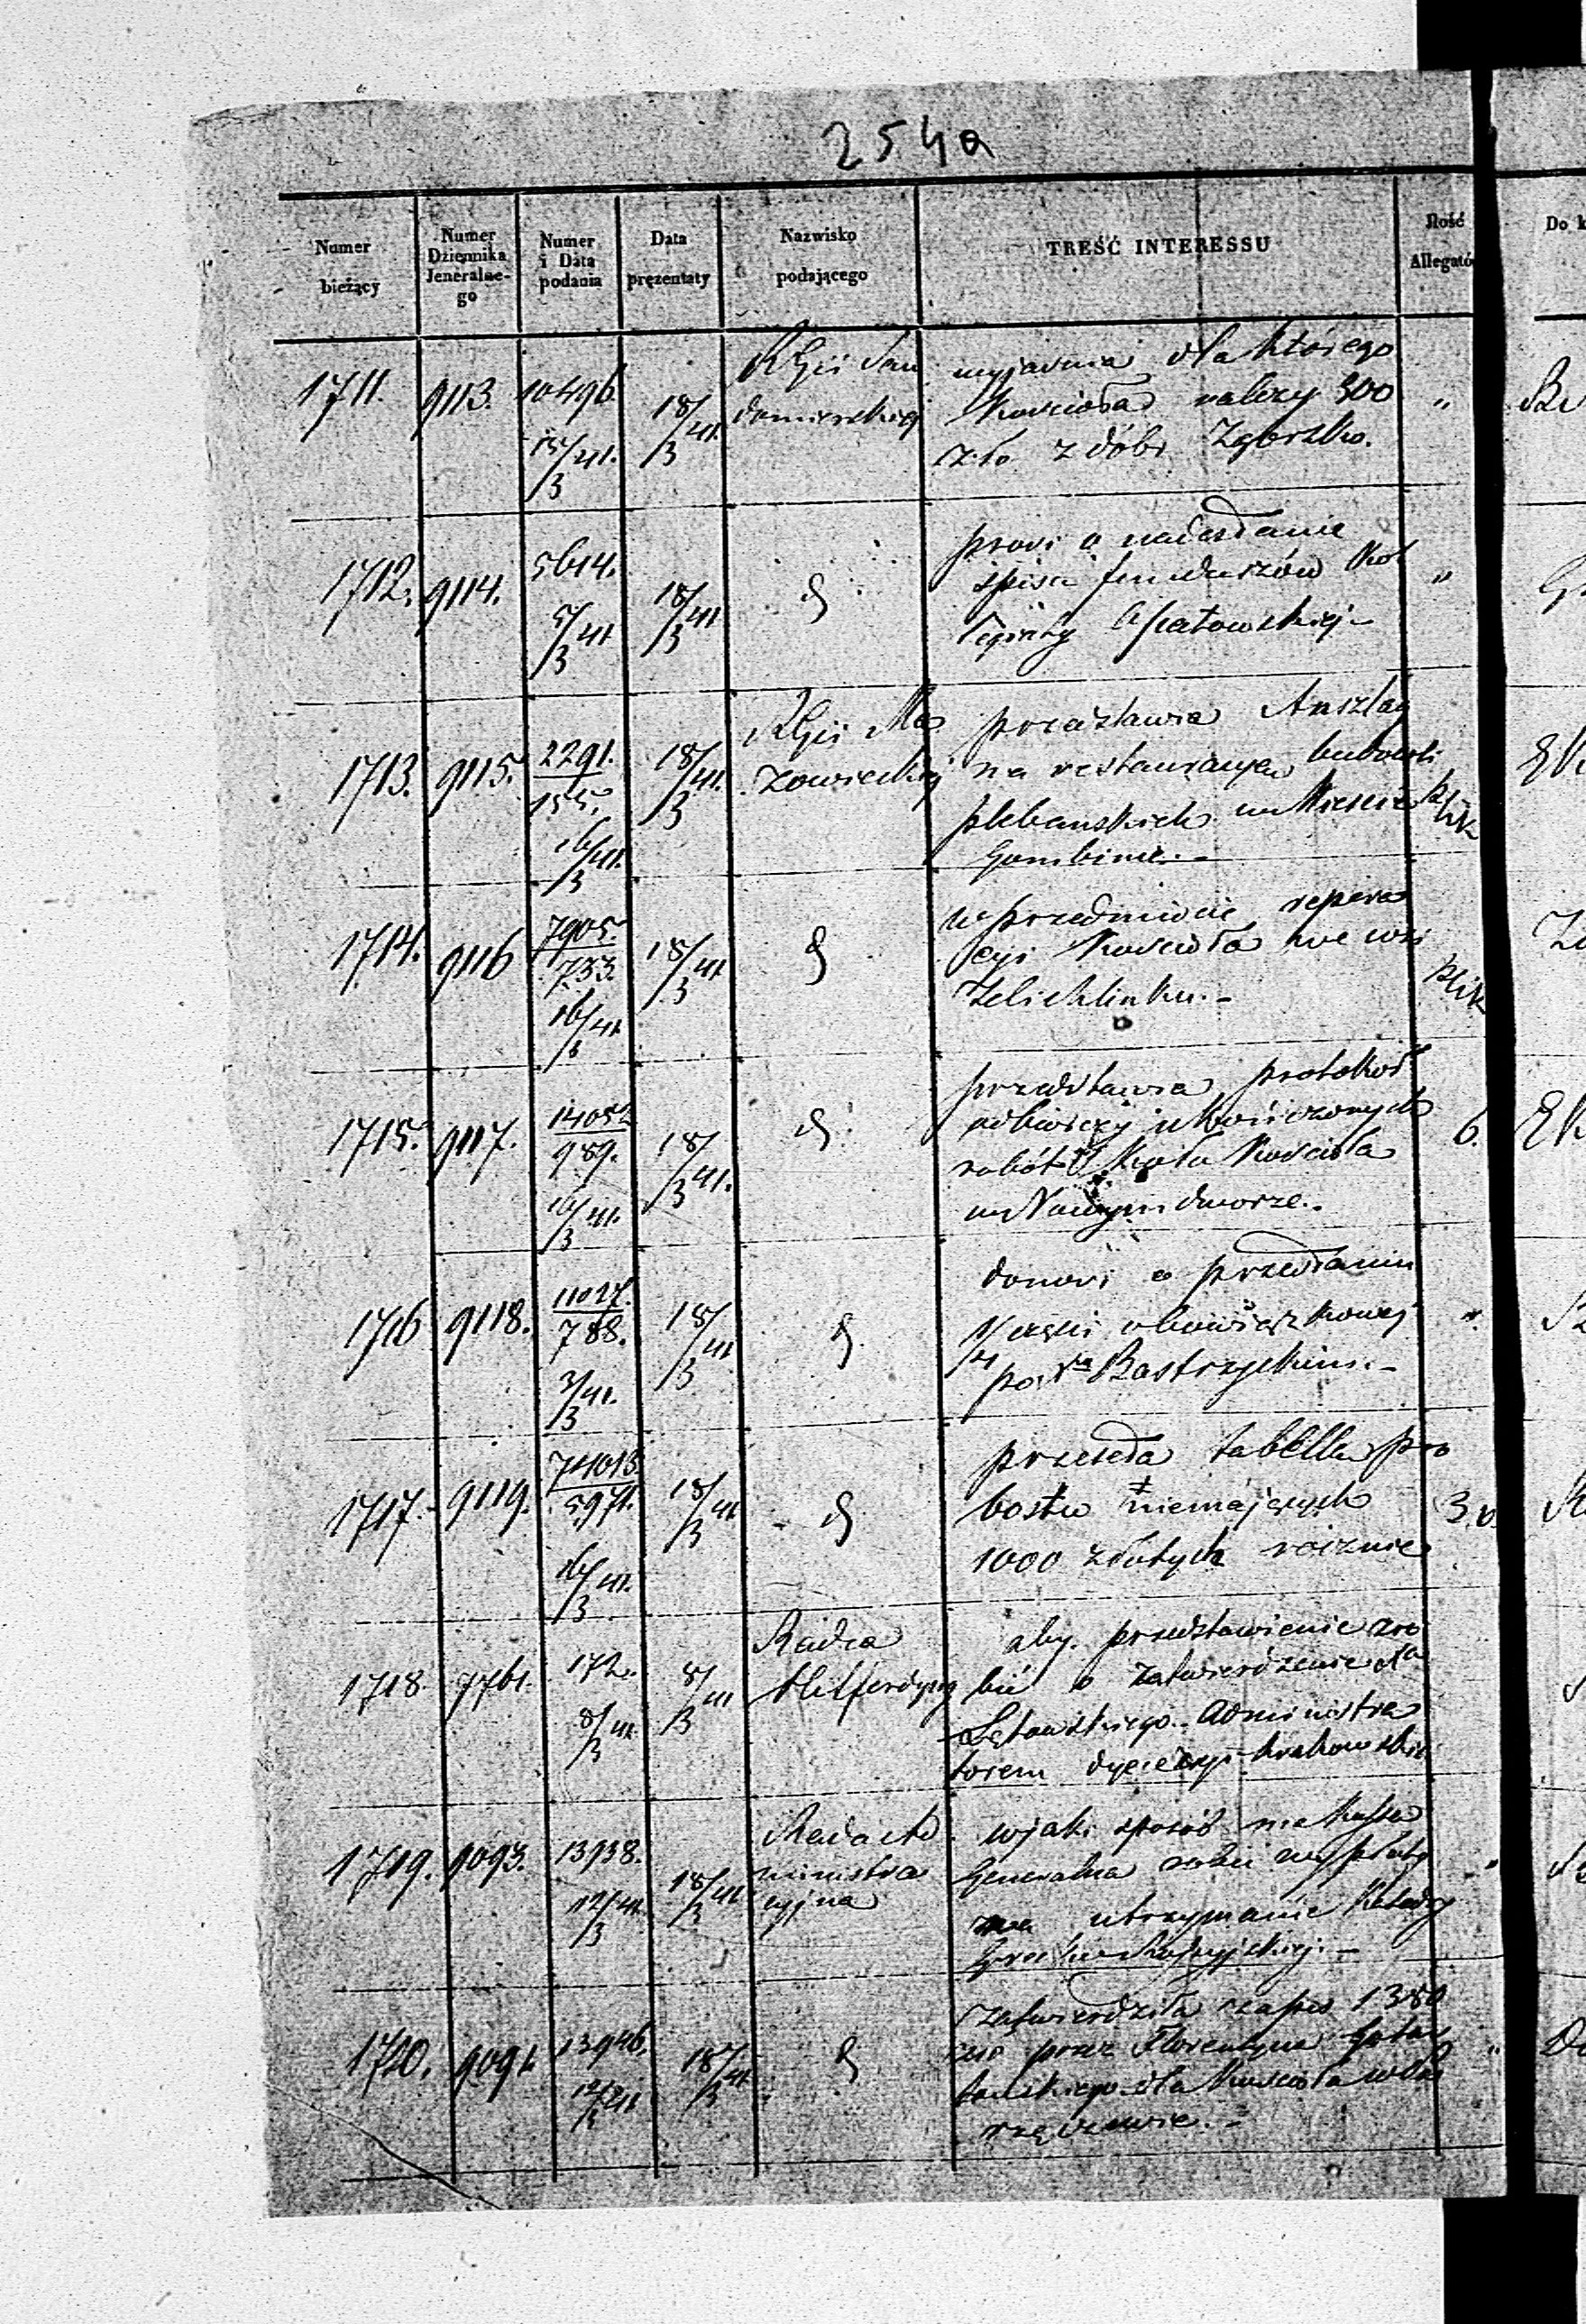 254a
Numer bieżący
Numer Dziennika Jeneralnego
Numer i Data podania
Data prezentaty
Nazwisko podającego
TREŚĆ INTERESSU
Ilość Allegató
Do k
1711. 9113. 10496. 15/3 41. 18/3 41. RGii San
domierskiej
wyjaśnia dla którego
Kościoła należy 300 "
złp. z dóbr Zgórsko.
1712. 9114. 5614. 5/3 41 18/3 41 d
prosi o nadesłanie
spisu funduszów Kol "
legiaty Opatowskiej
1713. 9115. 2291. 155. 16/3 41. 18/3 41. RGii Ma
zowieckiej
przedstawia Anszlag
na restauracyą budowli
plebańskich w Mieście plik
Gombinie.
1714. 9116 7905. 733. 16/3 41 18/3 41 d
w przedmiocie repera
cyi Kościoła we wsi plik
Żelichlinku.-
1715. 9117. 14052 989. 16/3 41. 18/3 41. d
przedstawia protokół
odbiorczy ukończonych 6.
robót koło Kościoła
w Nowymdworze.
1716 9118. 11027. 788. 3/3 41. 18/3 41 d
donosi o przesłaniu
1/4 części obowiązkowej "
po Bastrzyckim.-
1717. 9119. 74013. 5971. 16/3 41. 18/3 41 d
przeseła tabellę pro
bostw niemających 3.v.
1000 złotych rocznie
1718. 7761. 172. 8/3 41. 8/3 41 Radca
Hilferdyng
aby przedstawienie zro
bić o zatwierdzenie Xa
Łętowskiego Administra
torem dyecezyi krakowskie
1719. 9093. 13938. 12/3 41. 18/3 41 Rada Ad
ministra
cyjna
w jaki sposób ma Kassa
Generalna robić wypłaty "
na utrzymanie Katedry
Greko-Rossyjskiej.-
1720. 9094 13946. 12/3 41 18/3 41. d
zatwierdziła zapis 1380
złp przez Florentyna "
dla Kościoła w Ka
rzęczewie.-